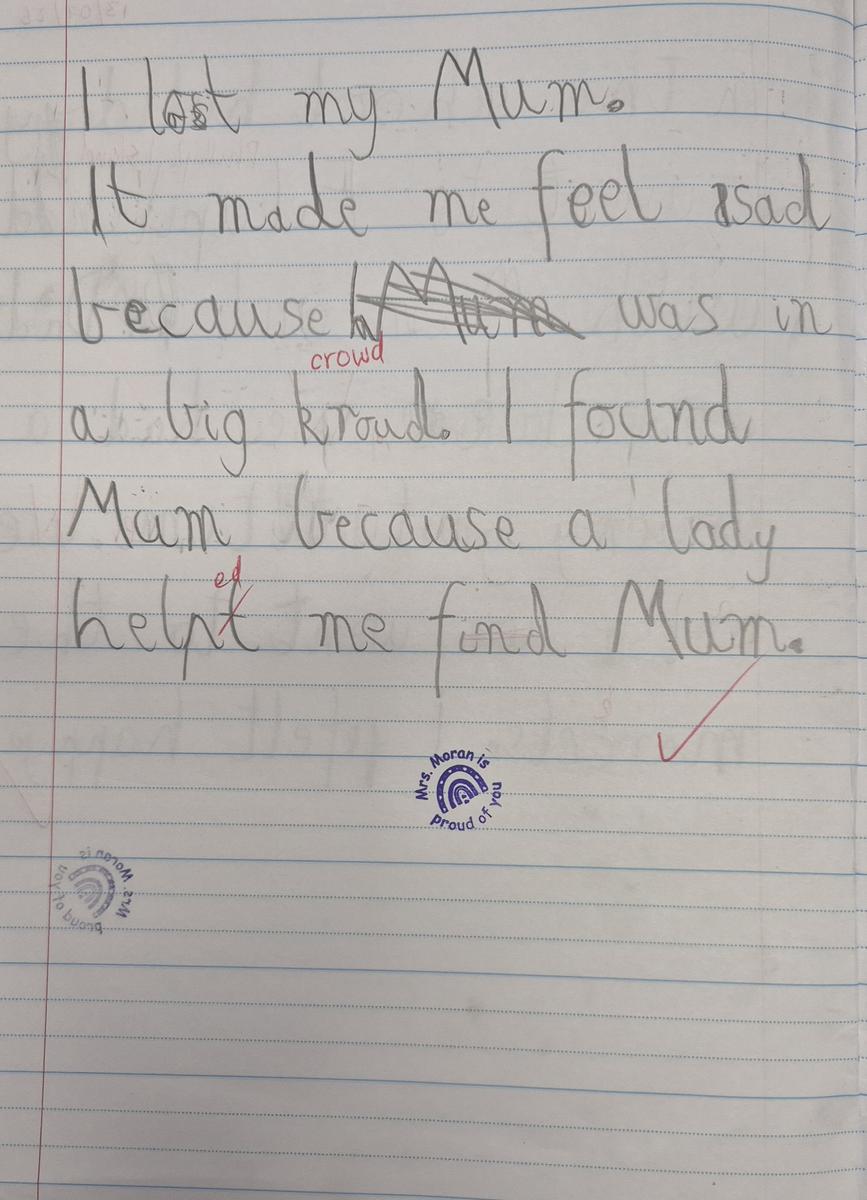 I lost my Mum.
It made me feel sad
because was in
crowd
a big kroud. I found
Mum because a lady
ed
helpt me find Mum.
Mrs. Moran is
proud of you
Mrs. Moran is
proud of you